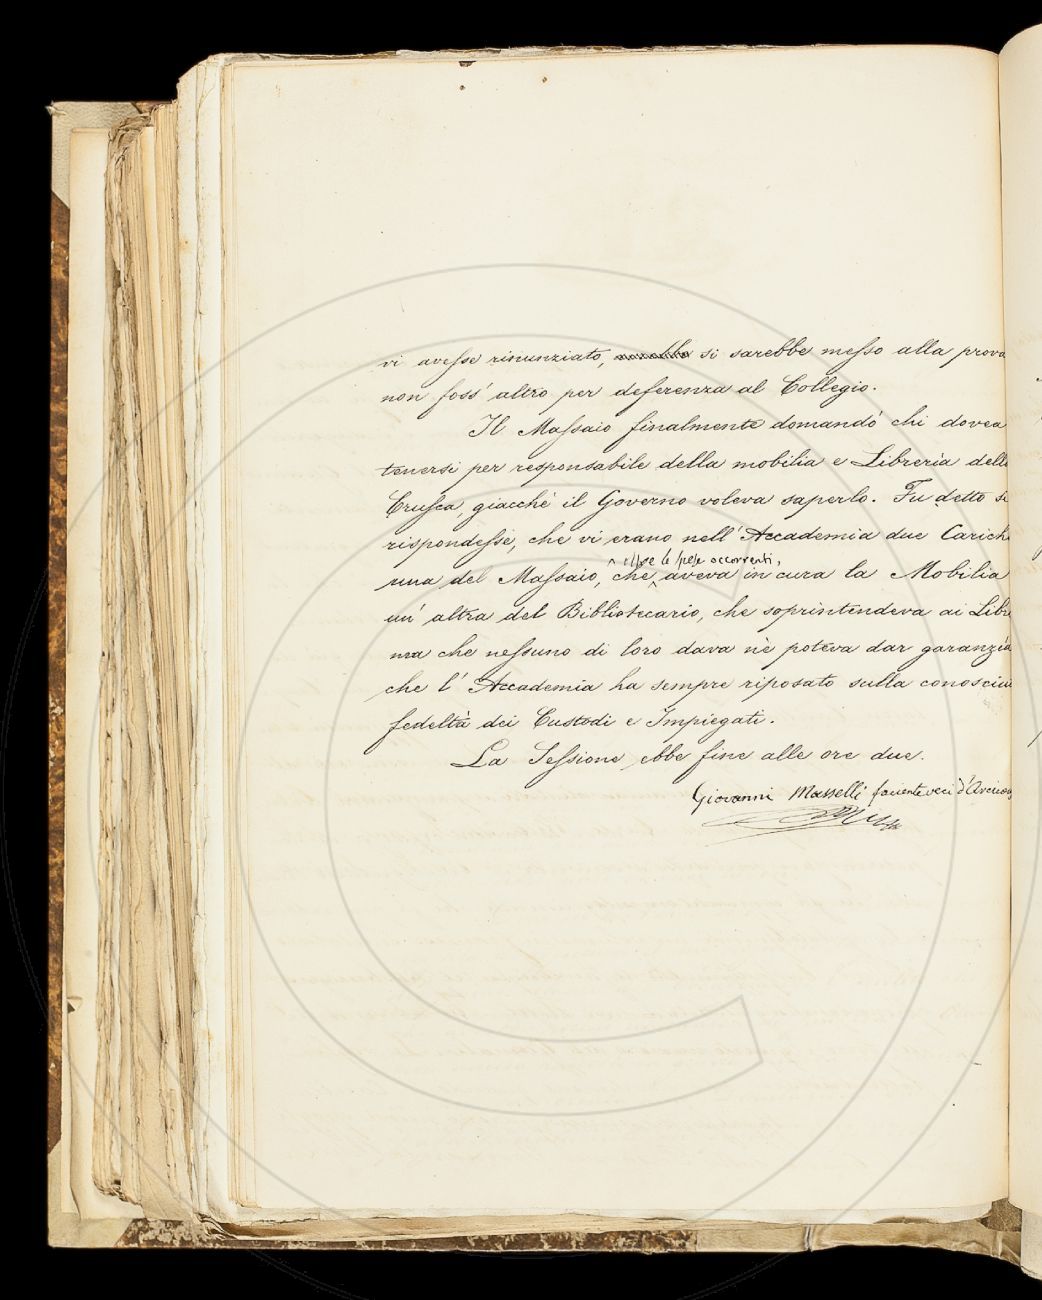 vi avesse rinunziato, si sarebbe messo alla prova
non foss' altro per deferenza al Collegio.
Il Massaio finalmente domandò chi dovea
tenersi per responsabile della mobilia e Libreria dell
Crusca, giacchè il Governo voleva saperlo. Fu detto si
rispondesse, che vi erano nell' Accademia due Carich
le spese occorrenti,
una del Massaio, che aveva in cura la Mobilia
un' altra del Bibliotecario, che soprintendeva ai Libr
ma che nessuno di loro dava nè poteva dar garanzia
che l' Accademia ha sempre riposato sulla conosciu
fedeltà dei Custodi e Impiegati.
La Sessione ebbe fine alle ore due.
Giovanni Masselli facienteveci d'Arcicon